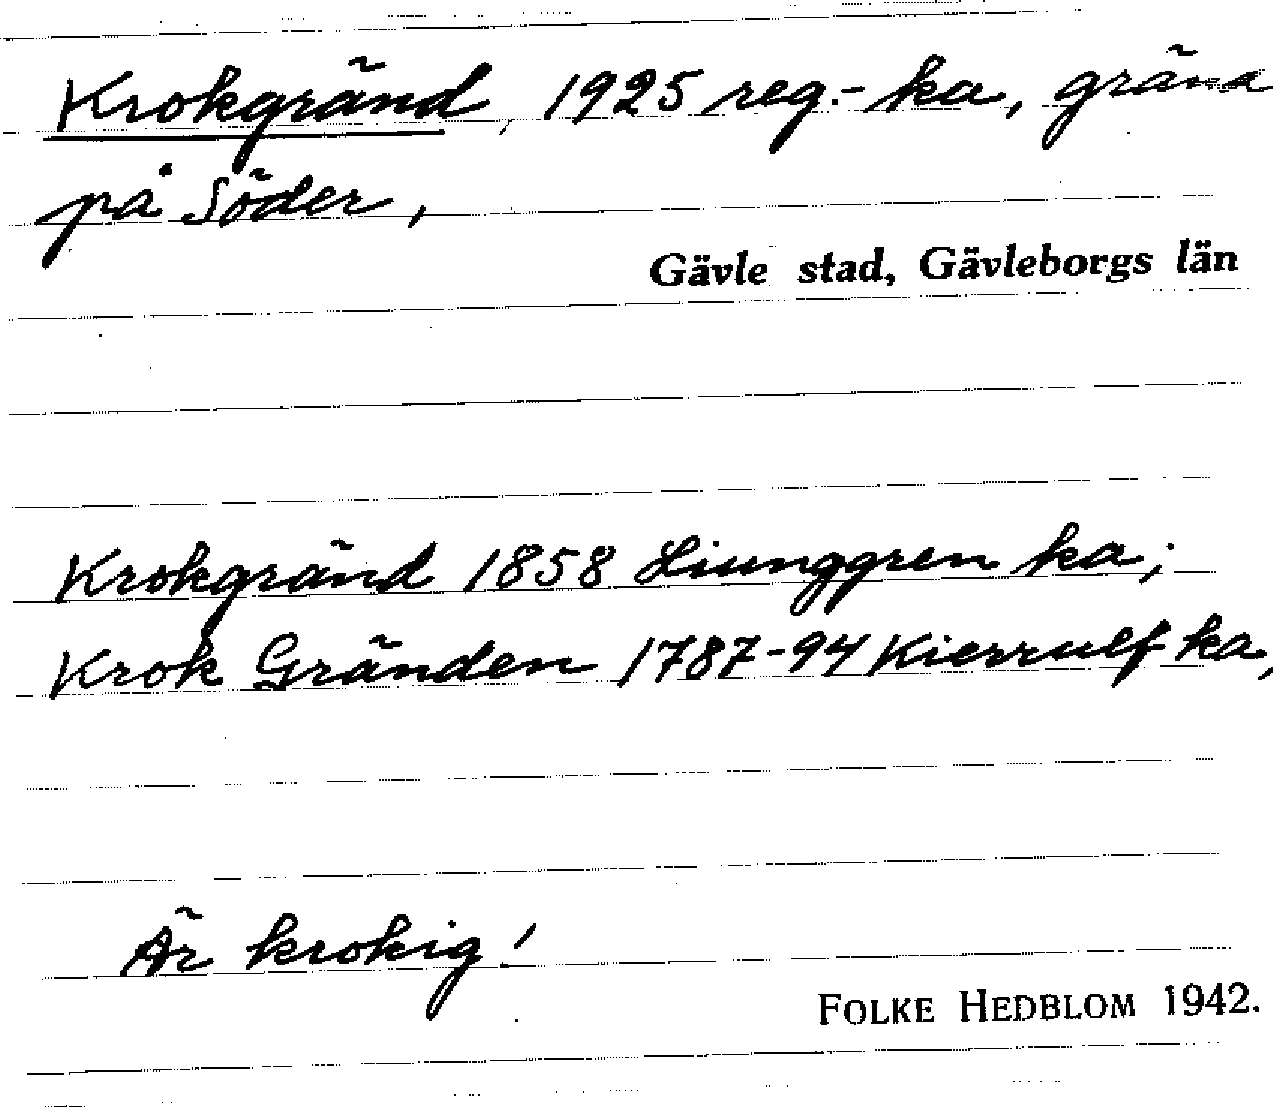 Krokgränd, 1925 reg.-ka, gränd
på Söder,
Gävle stad, Gävleborgs län
Krokgränd 1858 Liunggren ka;
Krok Gränden 1787-94 Kierrulf ka,
Är krokig!
FOLKE HEDBLOM 1942.